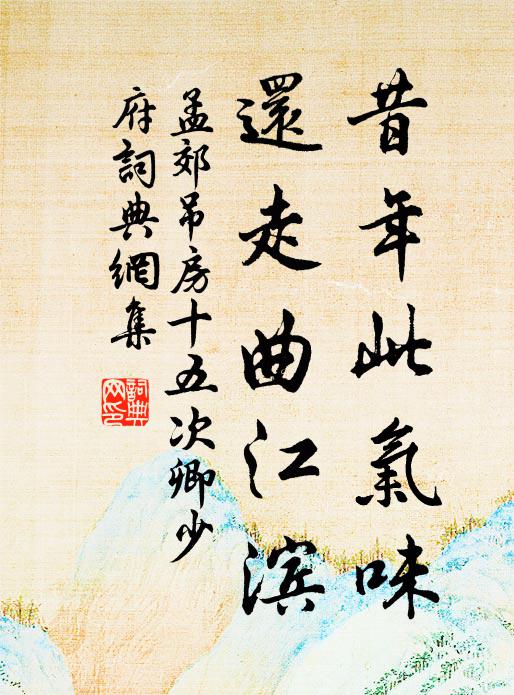 昔年此氣味
還走曲江滨
孟郊吊房十五次卿少
府詞典網集
詞典网印